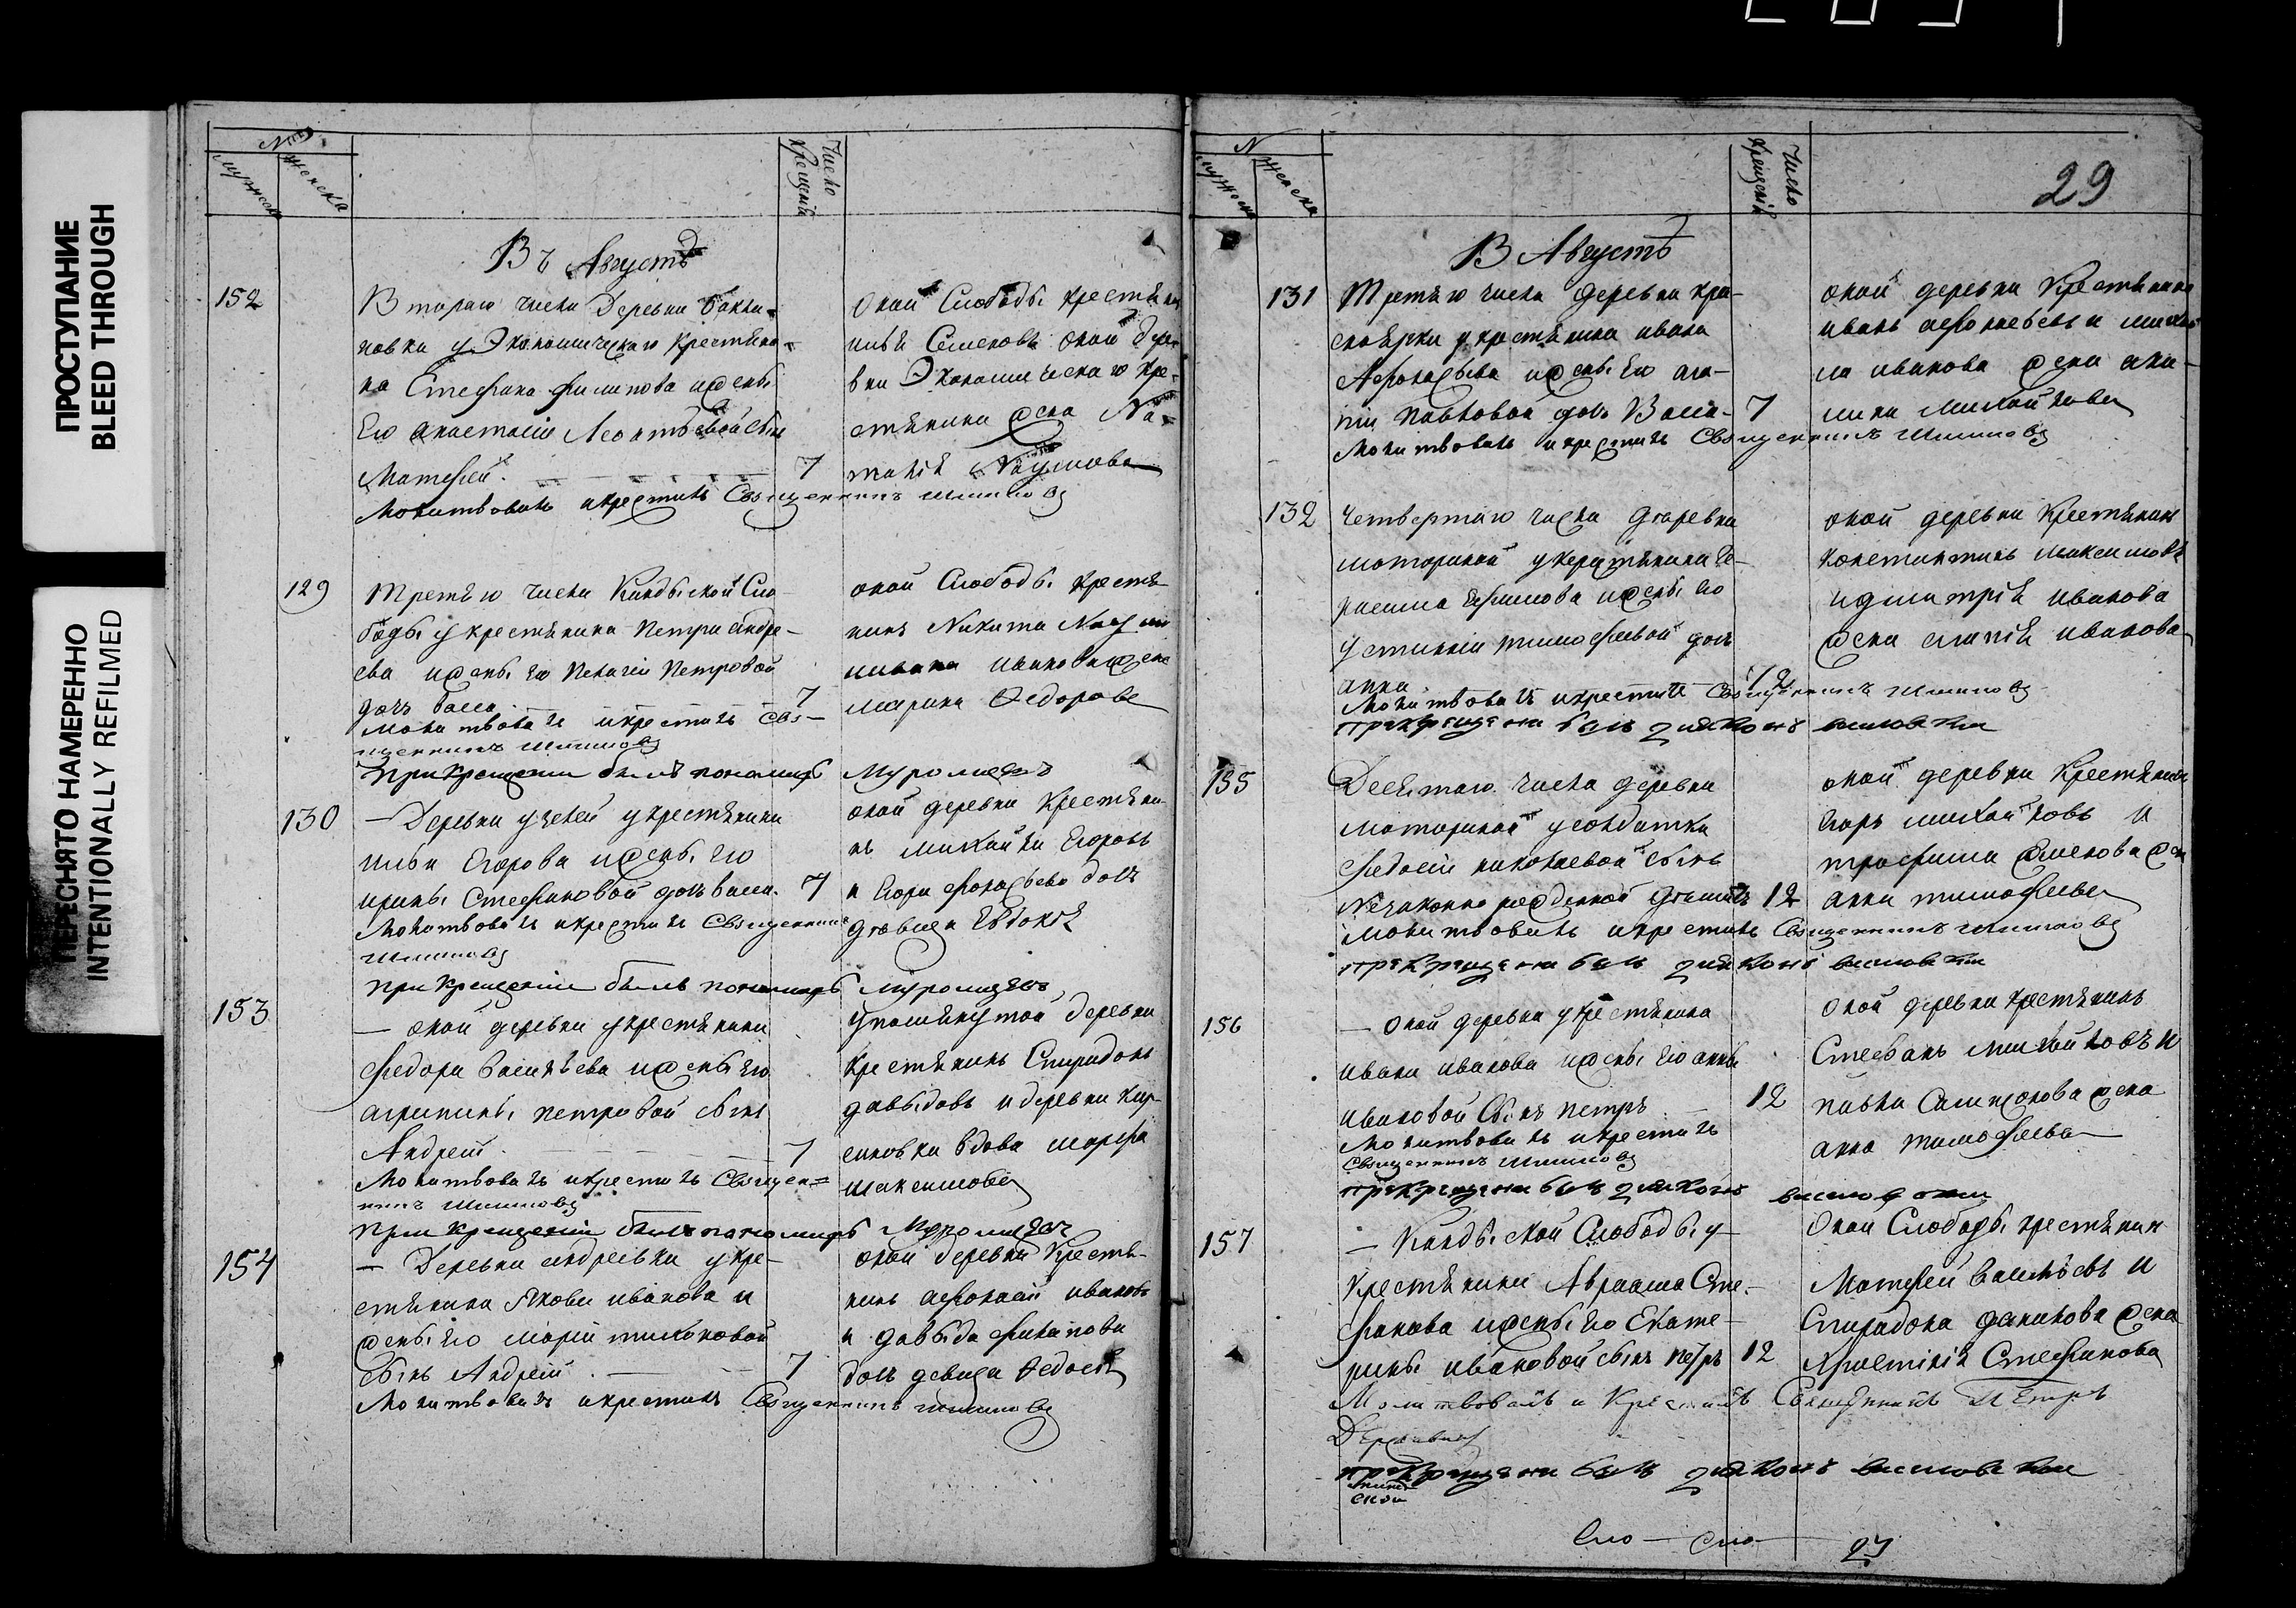 ПРОСТУПАНИЕ
BLEED THROUGH
ПЕРЕСНЯТО НАМЕРЕННО
INTENTIONALLY REFILMED
№
мужеска
женска
Число крещенія
Въ Августѣ
152
Втораго числа Деревни
новки у Экономическаго крестьяни-
на Стефана Филипова и жены
его Анастасіи Леонтьевой сынъ
Матфей.
7
Молитвовалъ и крестилъ Священникъ
оной Слободы крестьянинъ
Семеновъ оной дере-
вни Экономическаго кре-
стьянина жена На-
талія Наумова
129
Третьяго числа Кандыской Сло-
боды у крестьянина Петра Андре-
ева и жены его Пелагіи Петровой
дочь Васса
7
Молитвовалъ и крестилъ Свя-
щенникъ
При крещеніи былъ пономарь Муромцевъ
оной Слободы крестья-
нинъ Никита
Иванова жена
Марина Федорова
130
— Деревни у крестьянина
Ильи Егорова и жены его
Ирины Стефановой дочь Васса.
7
Молитвовалъ и крестилъ Священникъ
При крещеніи былъ пономарь Муромцевъ
оной деревни крестьяни-
нъ Михайла Егоровъ
и Егора Фонасьева дочь
девица Евдокія
153
— оной деревни у крестьянина
Федора Васильева и жены его
Агрипины Петровой сынъ
Андрей
7
Молитвовалъ и крестилъ Священ=
никъ
При крещеніи былъ пономарь Муромцевъ
упомянутой деревни
крестьянинъ Спиридонъ
Давыдовъ и деревни
вдова Марфа
Максимова
154
— Деревни Андреевки у кре-
стьянина Якова Иванова и
жены его Маріи Тихоновой
сынъ Андрей
7
Молитвовалъ и крестилъ Священникъ
оной деревни кресть-
нинъ Афонасій Ивановъ
и Давыда Филипова
дочь девица Федосія
№
мужеска
женска
Число крещенія
29
В Августѣ
131
Третьяго числа деревни Кра-
сноярки у крестьянина Ивана
Афонасьева и жены его Ага-
піи Павловой дочь Васса
7
Молитвовалъ и крестилъ Священникъ
оной деревни крестьянинъ
Иванъ Афонасьевъ и
Иванова жена Аки-
лина Михайлова
132
Четвертаго числа деревни
Моториной у крестьянина Ге-
расима Ефимова и жены его
Устиніи Тимофеевой дочь
Анна
12
Молитвовалъ и крестилъ Священникъ
при крещении былъ диаконъ
оной деревни крестьянинъ
Константинъ Максимовъ
и Дмитрія Иванова
жена Иванова
155
Десятаго числа деревни
Моториной у солдатки
Федосіи Николаевой сынъ
незаконно рожденной
12
Молитвовалъ и крестилъ Священникъ
при крещении былъ диаконъ
оной деревни крестьянинъ
Егоръ Михайловъ и
Трофима Семенова жена
Анна Тимофеева
156
— оной деревни у крестьянина
Ивана Иванова и жены его Анны
Ивановой сынъ Петръ
12
Молитвовалъ и крестилъ
Священникъ
при крещении былъ диаконъ
оной деревни крестьянинъ
Стефанъ Михайловъ и
Павла Самсонова жена
Анна Тимофеева
157
— Кандыской Слободы у
крестьянина Авраама Сте-
фанова и жены его Екате-
рины Ивановой сынъ Петръ
12
Молитвовалъ и крестилъ Священникъ Петръ
при крещении былъ диаконъ
оной Слободы крестьянинъ
Матфей Васильевъ и
Спиридона Данилова жена
Христинія Стефанова
27